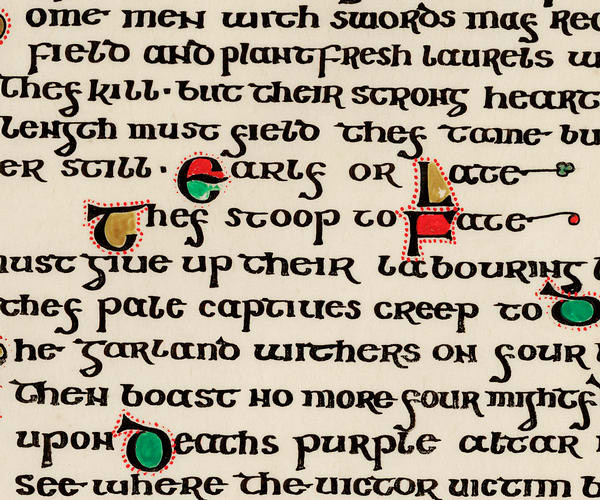 ome men with swords may rea
field and plant fresh laurels w
they kill · but their strong heart
length must yield they tame bu
er still · Early or Late
They stoop to Fate
must give up their labouring b
they pale captives creep to D
he garland withers on your b
Then boast no more your mighty
upon Deaths purple altar n
see where the victor victim b